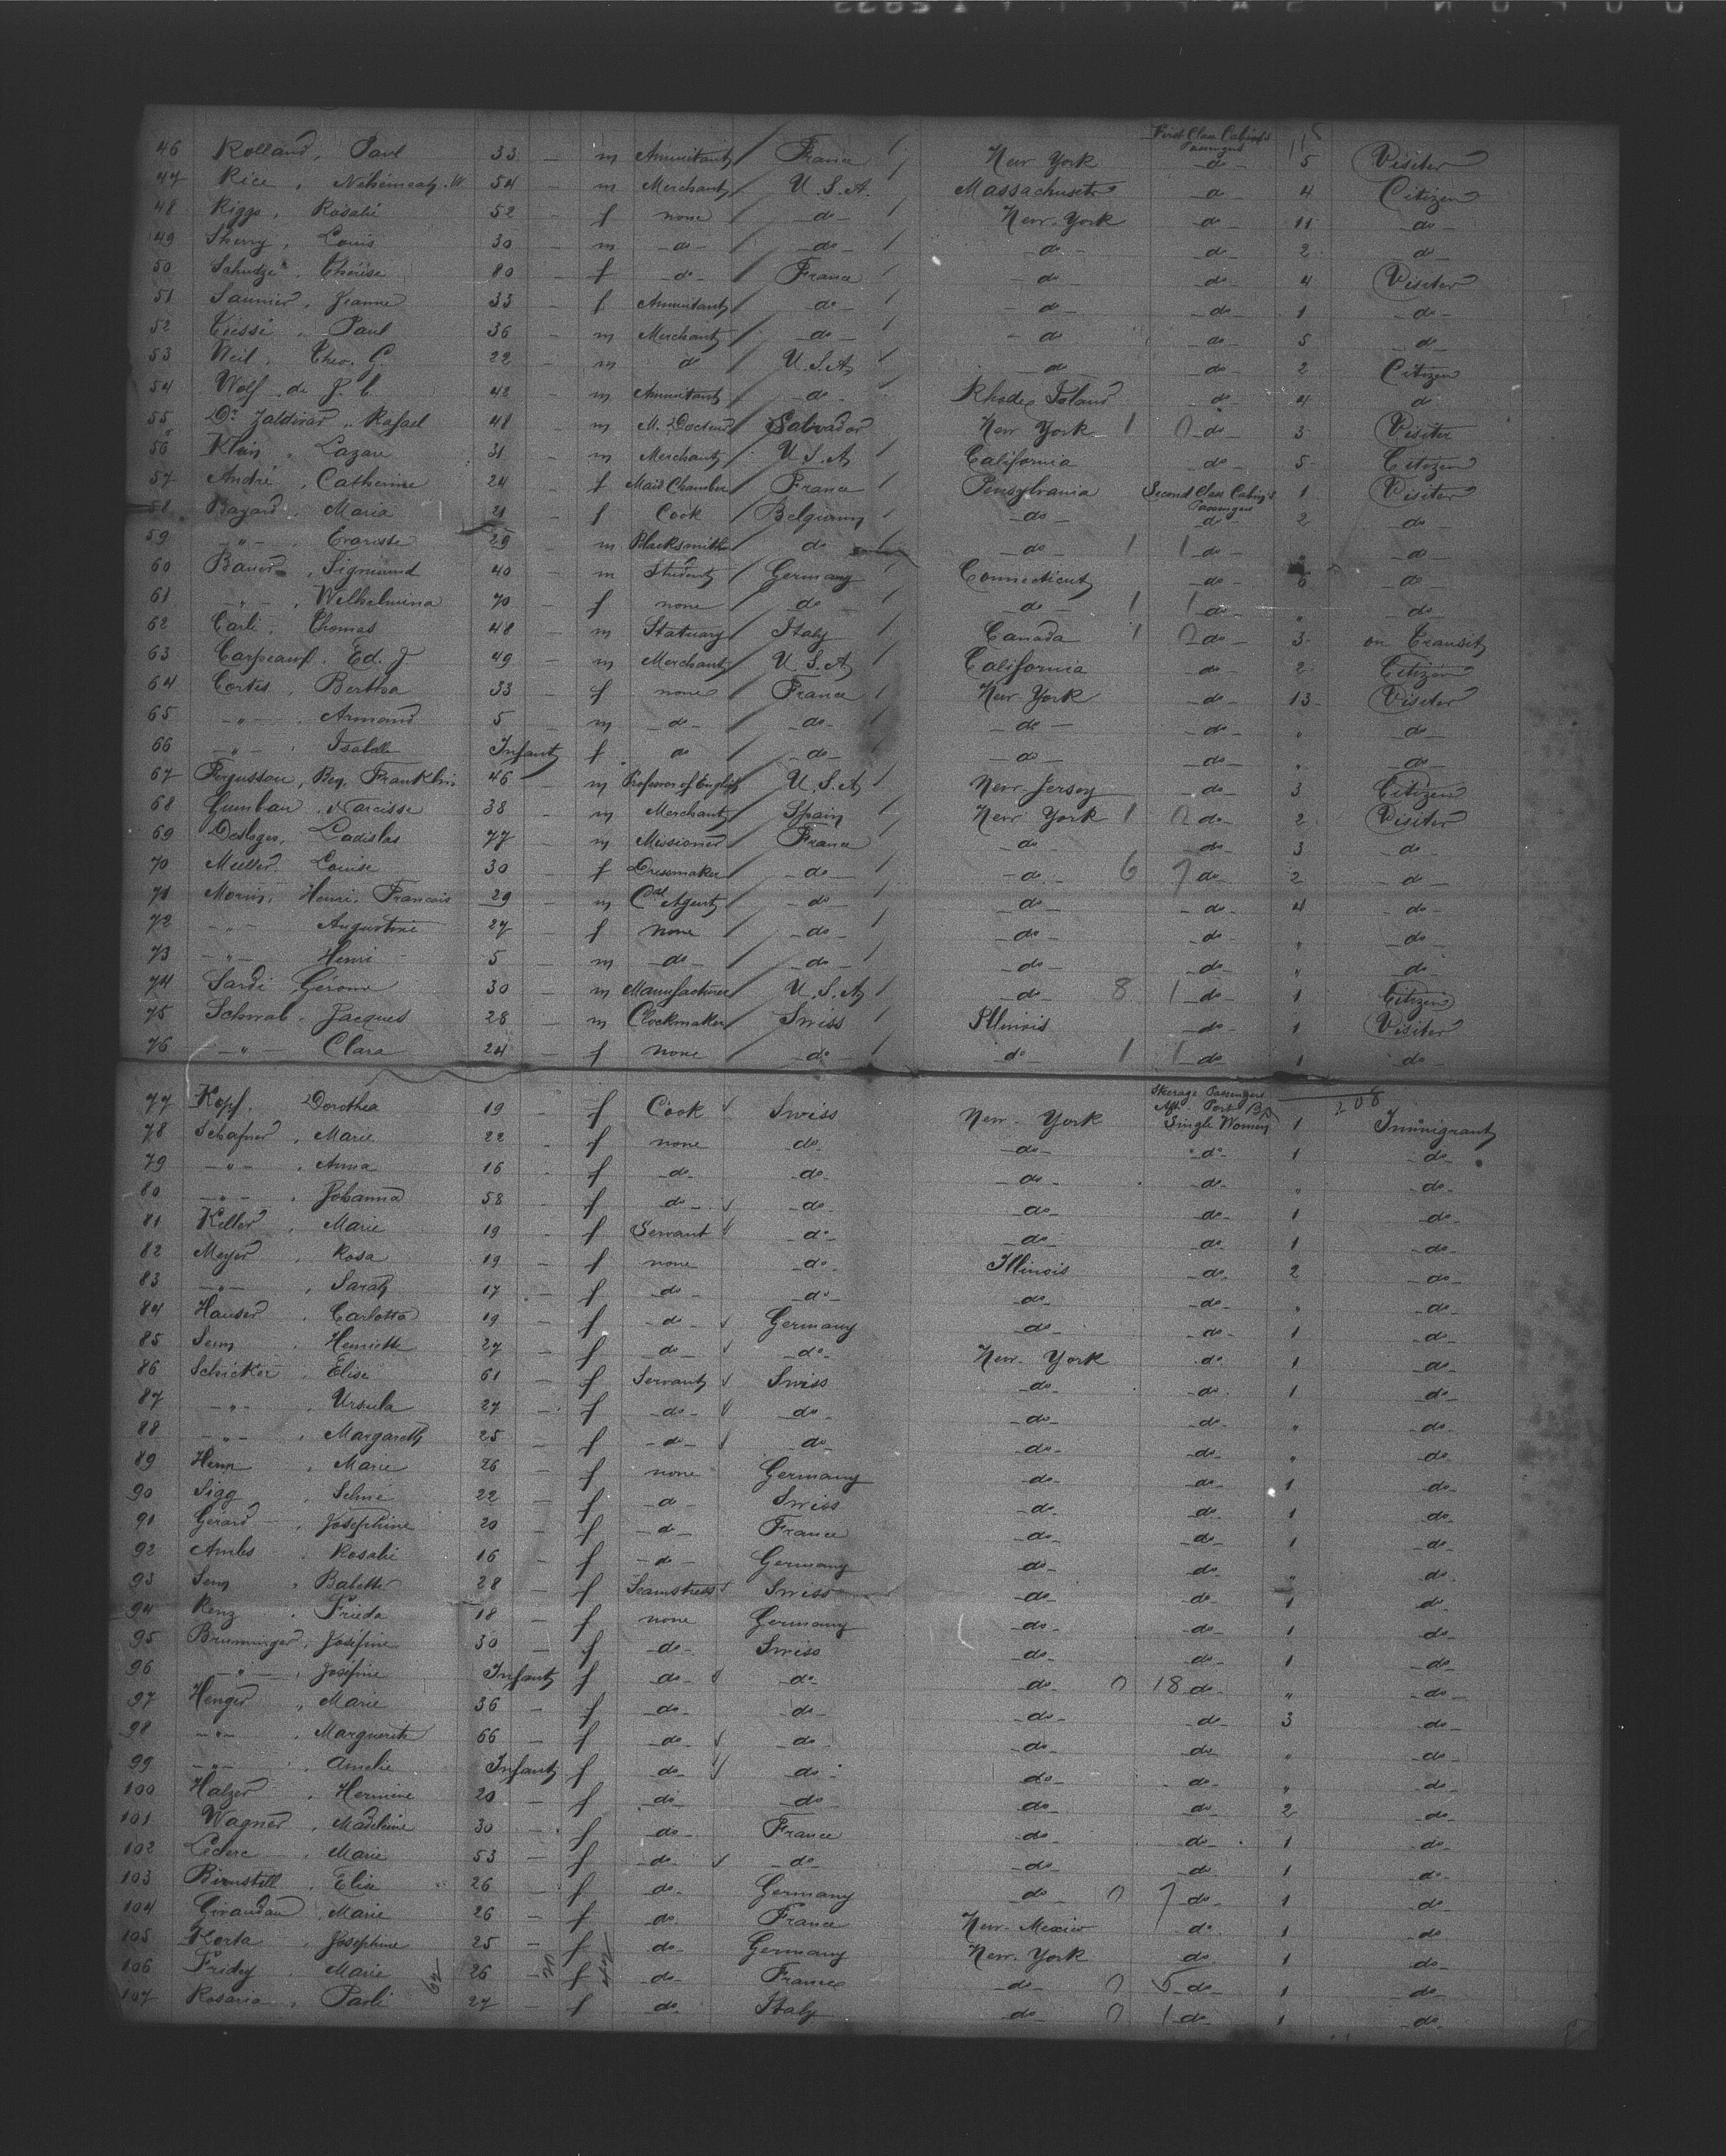 First Class Cabin's Passengers
46 Rolland, Paul 33 — m Annuitant France New York do 5 Visitor
47 Rice, Nehemeah. W 54 — m Merchant U.S.A. Massachusets do 4 Citizen
48 Riggs, Rosalie 52 — f none do New-York do 11 do
49 Sherry, Louis 30 — m do do do do 2 do
50 Thérèse 80 — f do France do do 4 Visitor
51 Saunier, Jeanne 33 — f Annuitant do do do 1 do
52 Tiessé, Paul 36 — m Merchant do do do 5 do
53 Weil, Theo. G. 22 — m do U.S.A do do 2 Citizen
54 Wolf de J. C. 42 — m Annuitant do Rhode Island do 4 do
55 Dr Zaldivar, Rafael 48 — m M. Docteur Salvador New York 1 0 do 3 Visiter
56 Klein, Lazare 31 — m Merchant U.S.A California do 5 Citizen
57 André, Catherine 24 — f Maid Chamber France Pensylvania Second Class Cabin's Passengers 1 Visitor
58 Bayard, Maria 21 — f Cook Belgium do do 2 do
59 —"— Evariste 29 — m Blacksmith do do 1 1 do " do
60 Bauer, Sigmund 40 — m Student Germany Connecticut do 6 do
61 —"—, Wilhelmina 70 — f none do do 1 1 do " do
62 Carli, Thomas 48 — m Statuary Italy Canada 1 0 do 3 on Transit
63 Ed. J. 49 — m Merchant U.S.A California do 2 Citizen
64 Cortés, Bertha 33 — f none France New-York do 13 Visitor
65 —"— Armand 5 — m do do do do " do
66 —"— Isabelle Infant f do do do do " do
67 Fergusson, Benj. Franklin 46 — m Professor of English U.S.A New-Jersey do 3 Citizen
68 Gumbau, Narcisse 38 — m Merchant Spain New York 1 0 do 2 Visitor
69 Desloges, Ladislas 77 — m Missioner France do do 3 do
70 Muller, Louise 30 — f Dressmaker do do 6 7 do 2 do
71 Morin, Henri. Francois 29 — m Cal Agent do do do 4 do
72 —"— Augustine 27 — f none do do do " do
73 —"— Henri 5 — m do do do do " do
74 Sardi Gérome 30 — m Manufacturer U.S.A do 8 1 do 1 Citizen
75 Schwab, Jacques 28 — m Clockmaker Swiss Illinois do 1 Visitor
76 —"— Clara 24 — f none do do 1 1 do 1 do
208
Steerage Passengers Aft. Port
77 Kopf, Dorothea 19 — f Cook Swiss New-York Single Women 1 Immigrant
78 Schafner, Marie 22 — f none do do do 1 do
79 —"—, Anna 16 — f do do do do " do
80 —"—, Johanna 58 — f do do do do 1 do
81 Keller, Marie 19 — f Servant do do do 1 do
82 Meyer, Rosa 19 — f none do Illinois do 2 do
83 —"—, Sarah 17 — f do do do do " do
84 Hauser, Carlotta 19 — f do Germany do do 1 do
85 Senn, Henriette 27 — f do do New-York do 1 do
86 Schicker, Elise 61 — f Servant Swiss do do 1 do
87 —"—, Ursula 27 — f do do do do " do
88 —"—, Margareth 25 — f do do do do " do
89 Marie 26 — f none Germany do do 1 do
90 Sigg, Seline 22 — f do Swiss do do 1 do
91 Gerard, Josephine 20 — f do France do do 1 do
92 Ambs, Rosalie 16 — f do Germany do do " do
93 Senn, Babette 28 — f Seamstress Swiss do do 1 do
94 Renz, Frieda 18 — f none Germany do do 1 do
95 Brunninger, Josefine 30 — f do Swiss do do 1 do
96 —"—, Josefine Infant f do do do 0 18 do " do
97 Henger, Marie 36 — f do do do do 3 do
98 —"—, Marguerite 66 — f do do do do " do
99 —"—, Amelie Infant f do do do do " do
100 Halzer, Hermine 20 — f do do do do 2 do
101 Wagner, Madeleine 30 — f do France do do 1 do
102 Leclerc, Marie 53 — f do do do do 1 do
103 Birnstill, Elise 26 — f do Germany do 0 7 do 1 do
104 Giraudau, Marie 26 — f do France New-Mexico do 1 do
105 Korta, Josephine 25 — f do Germany New-York do 1 do
106 Fridey, Marie 26 — f do France do 0 5 do 1 do
107 Rosario, Paoli 27 — f do Italy do 0 1 do 1 do